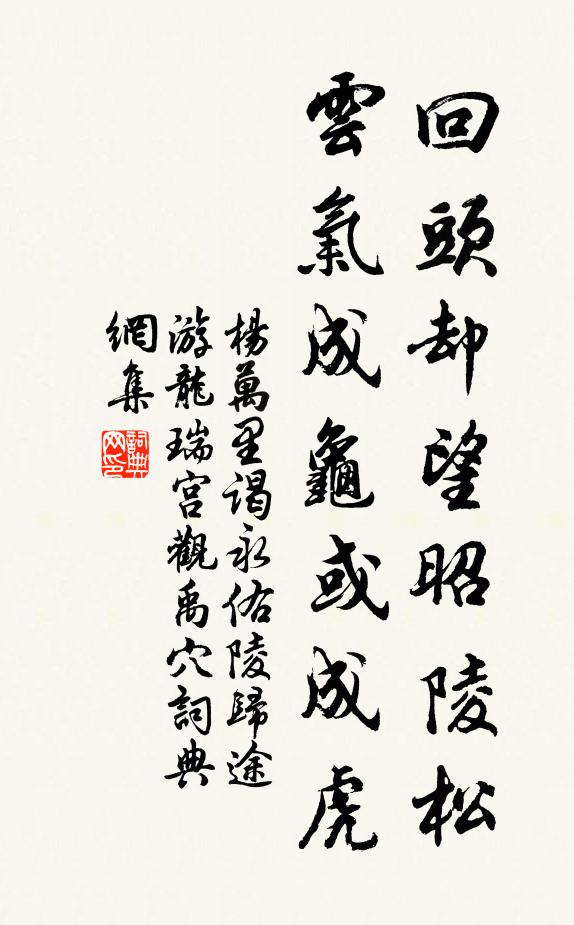 回頭却望昭陵松
雲氣成龜或成虎
楊萬里謁永佑陵歸途
游龍瑞宮觀禹穴詞典
網集
詞典网印